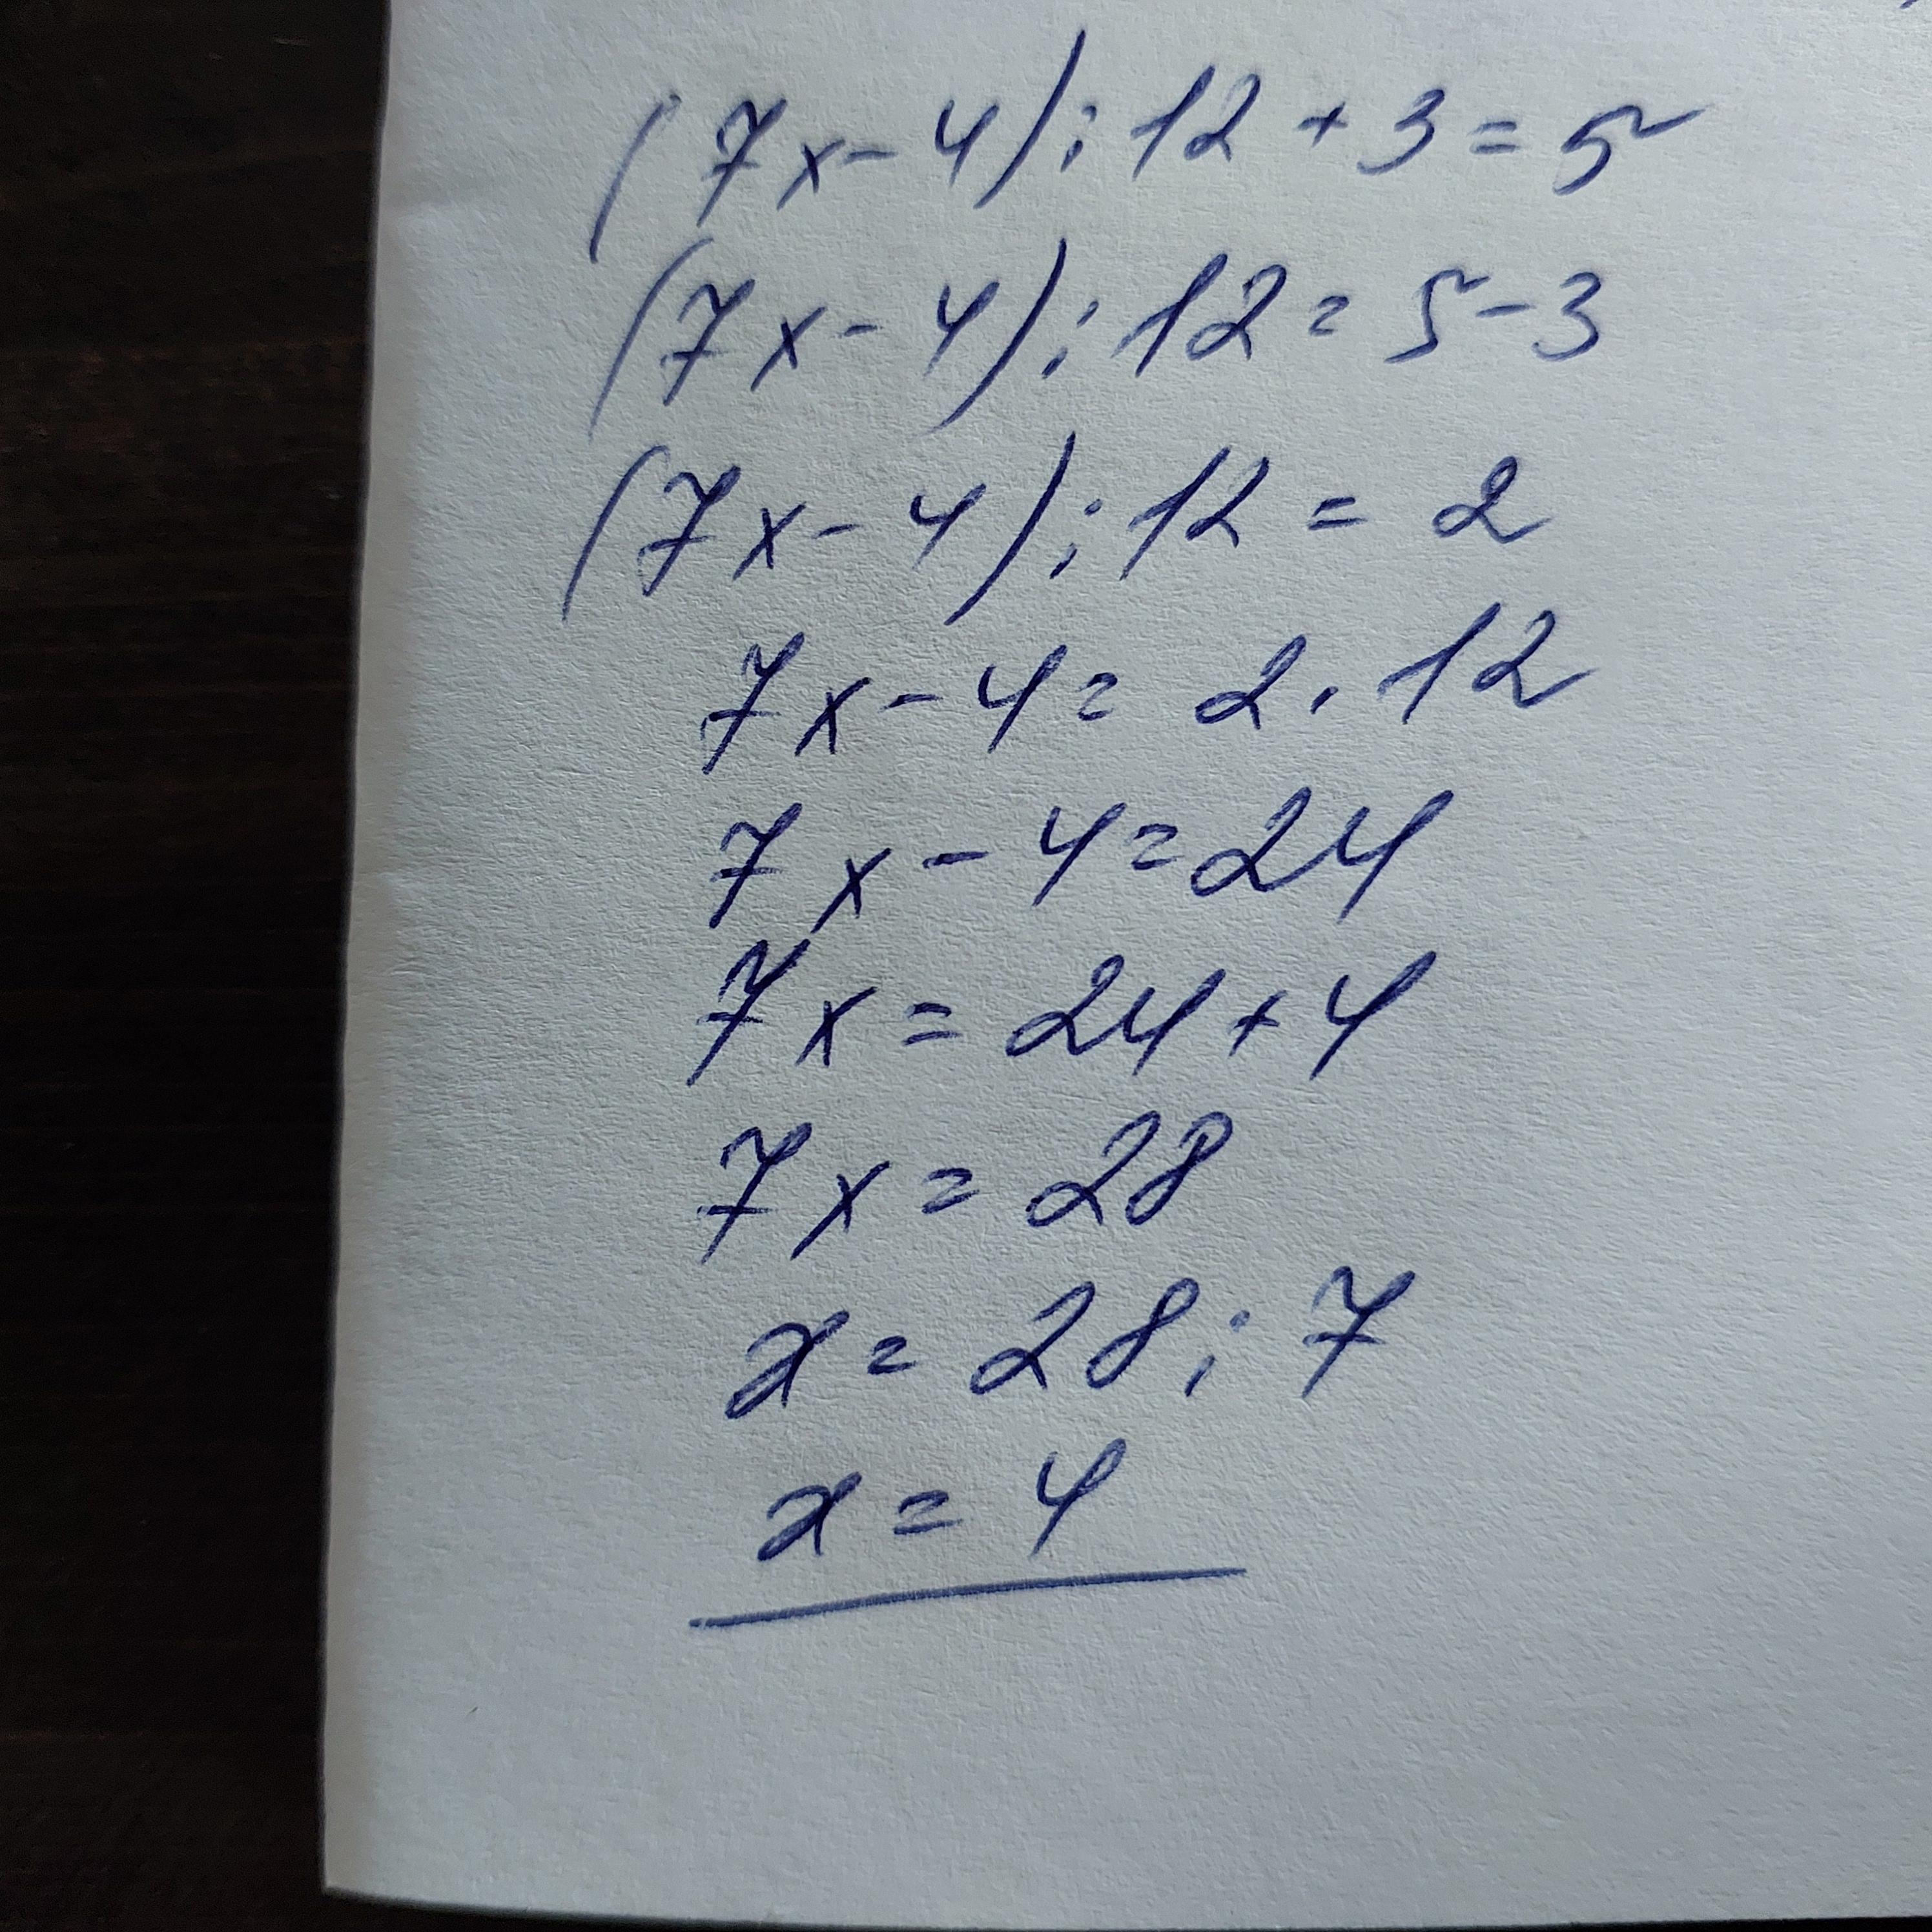 (7x-4):12+3=5
(7x-4):12=5-3
(7x-4):12=2
7x-4=2·12
7x-4=24
7x=24+4
7x=28
x=28:7
x=4